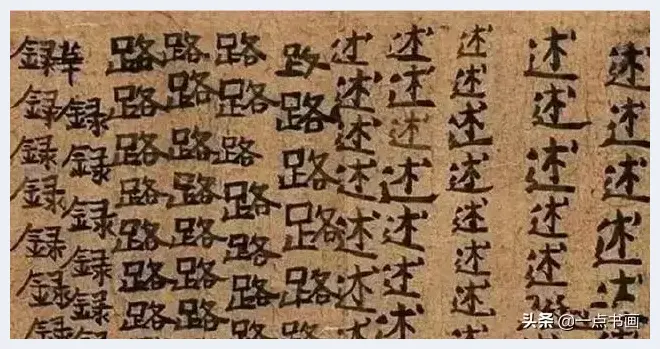 述述述述述
述述述述述
述述述述述述述述
述述述述述述述
述述述述述述
路路路路路路
路路路路路路路
路路路路路路路
路路路路路路路
華録録録録録
録録録録録録録
头条 @一点书画